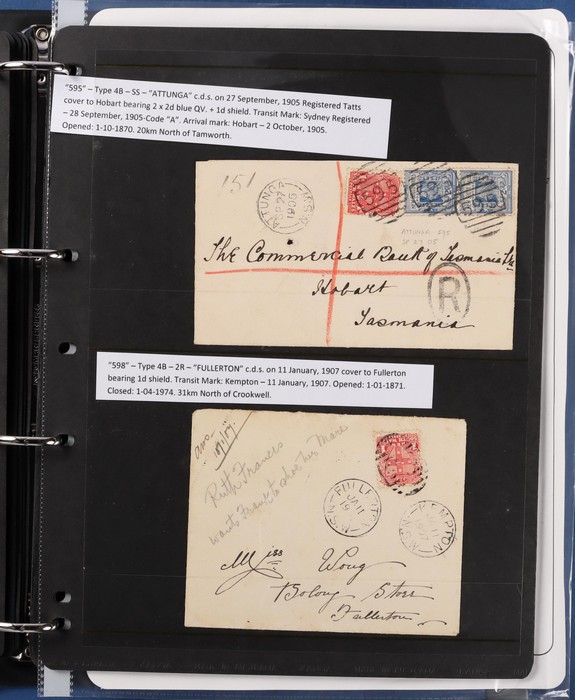 "595" – Type 4B – SS – "ATTUNGA" c.d.s. on 27 September, 1905 Registered Tatts
cover to Hobart bearing 2 x 2d blue QV. + 1d shield. Transit Mark: Sydney Registered
– 28 September, 1905-Code "A". Arrival mark: Hobart – 2 October, 1905.
Opened: 1-10-1870. 20km North of Tamworth.
151
ATTUNGA
SP 27
1905
N.S.W
595
ATTUNGA 595
The Commercial Bank of Tasmania Ltd
Hobart
R
Tasmania
"598" – Type 4B – 2R – "FULLERTON" c.d.s. on 11 January, 1907 cover to Fullerton
bearing 1d shield. Transit Mark: Kempton – 11 January, 1907. Opened: 1-01-1871.
Closed: 1-04-1974. 31km North of Crookwell.
Ruth Frances
wants Frank to shoe her Mare
FULLERTON
JA 11
N.S.W
KEMPTON
1907
N.S.W
Miss Wong
Bolong Store
Fullerton